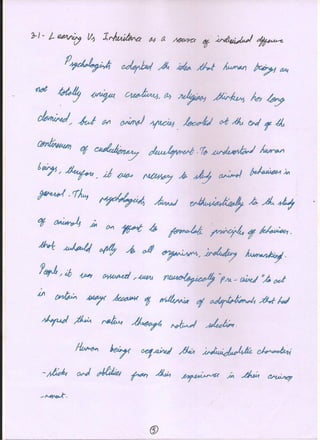 3.1- Learning Vs Inheritence as a source of individual difference
Psychologists adopted the idea that human beings are
not totally unique creatures, as religious thinkers has long
claimed, but an animal species located at the end of the
continuum of evolutionary development. To understand human
beings, therefore, it was necessary to study animal behaviour in
general. Thus psychologists turned enthusiastically to the study
of animals in an effort to formulate principles of behaviour
that would apply to all organisms, including humankind.
People, it was assumed, were neurologically "pre-wired" to act
in certain ways because of millennia of adaptations that had
shaped their nature through natural selection.
Human beings acquired their individualistic characteri
-stics and abilities from their experience in their environ
-ment.
3